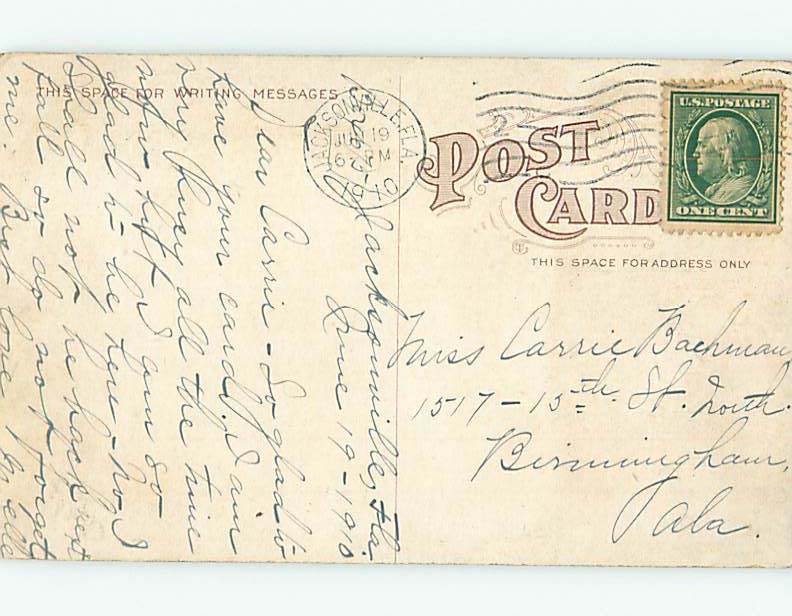 THIS SPACE FOR WRITING MESSAGES
Jacksonville, Fla.
June 19 - 1910
Dear Carrie - So glad to
have your card. I am
very busy all the time
now but I am so
glad to be here - No I
shall not be back next
Fall so do not forget
me. Best love
JACKSONVILLE, FLA.
JUN 19
6 PM
1910
POST
CARD
U.S. POSTAGE
ONE CENT
THIS SPACE FOR ADDRESS ONLY
Miss Carrie Bachman,
1517 - 15th. St. North.
Birmingham,
Ala.